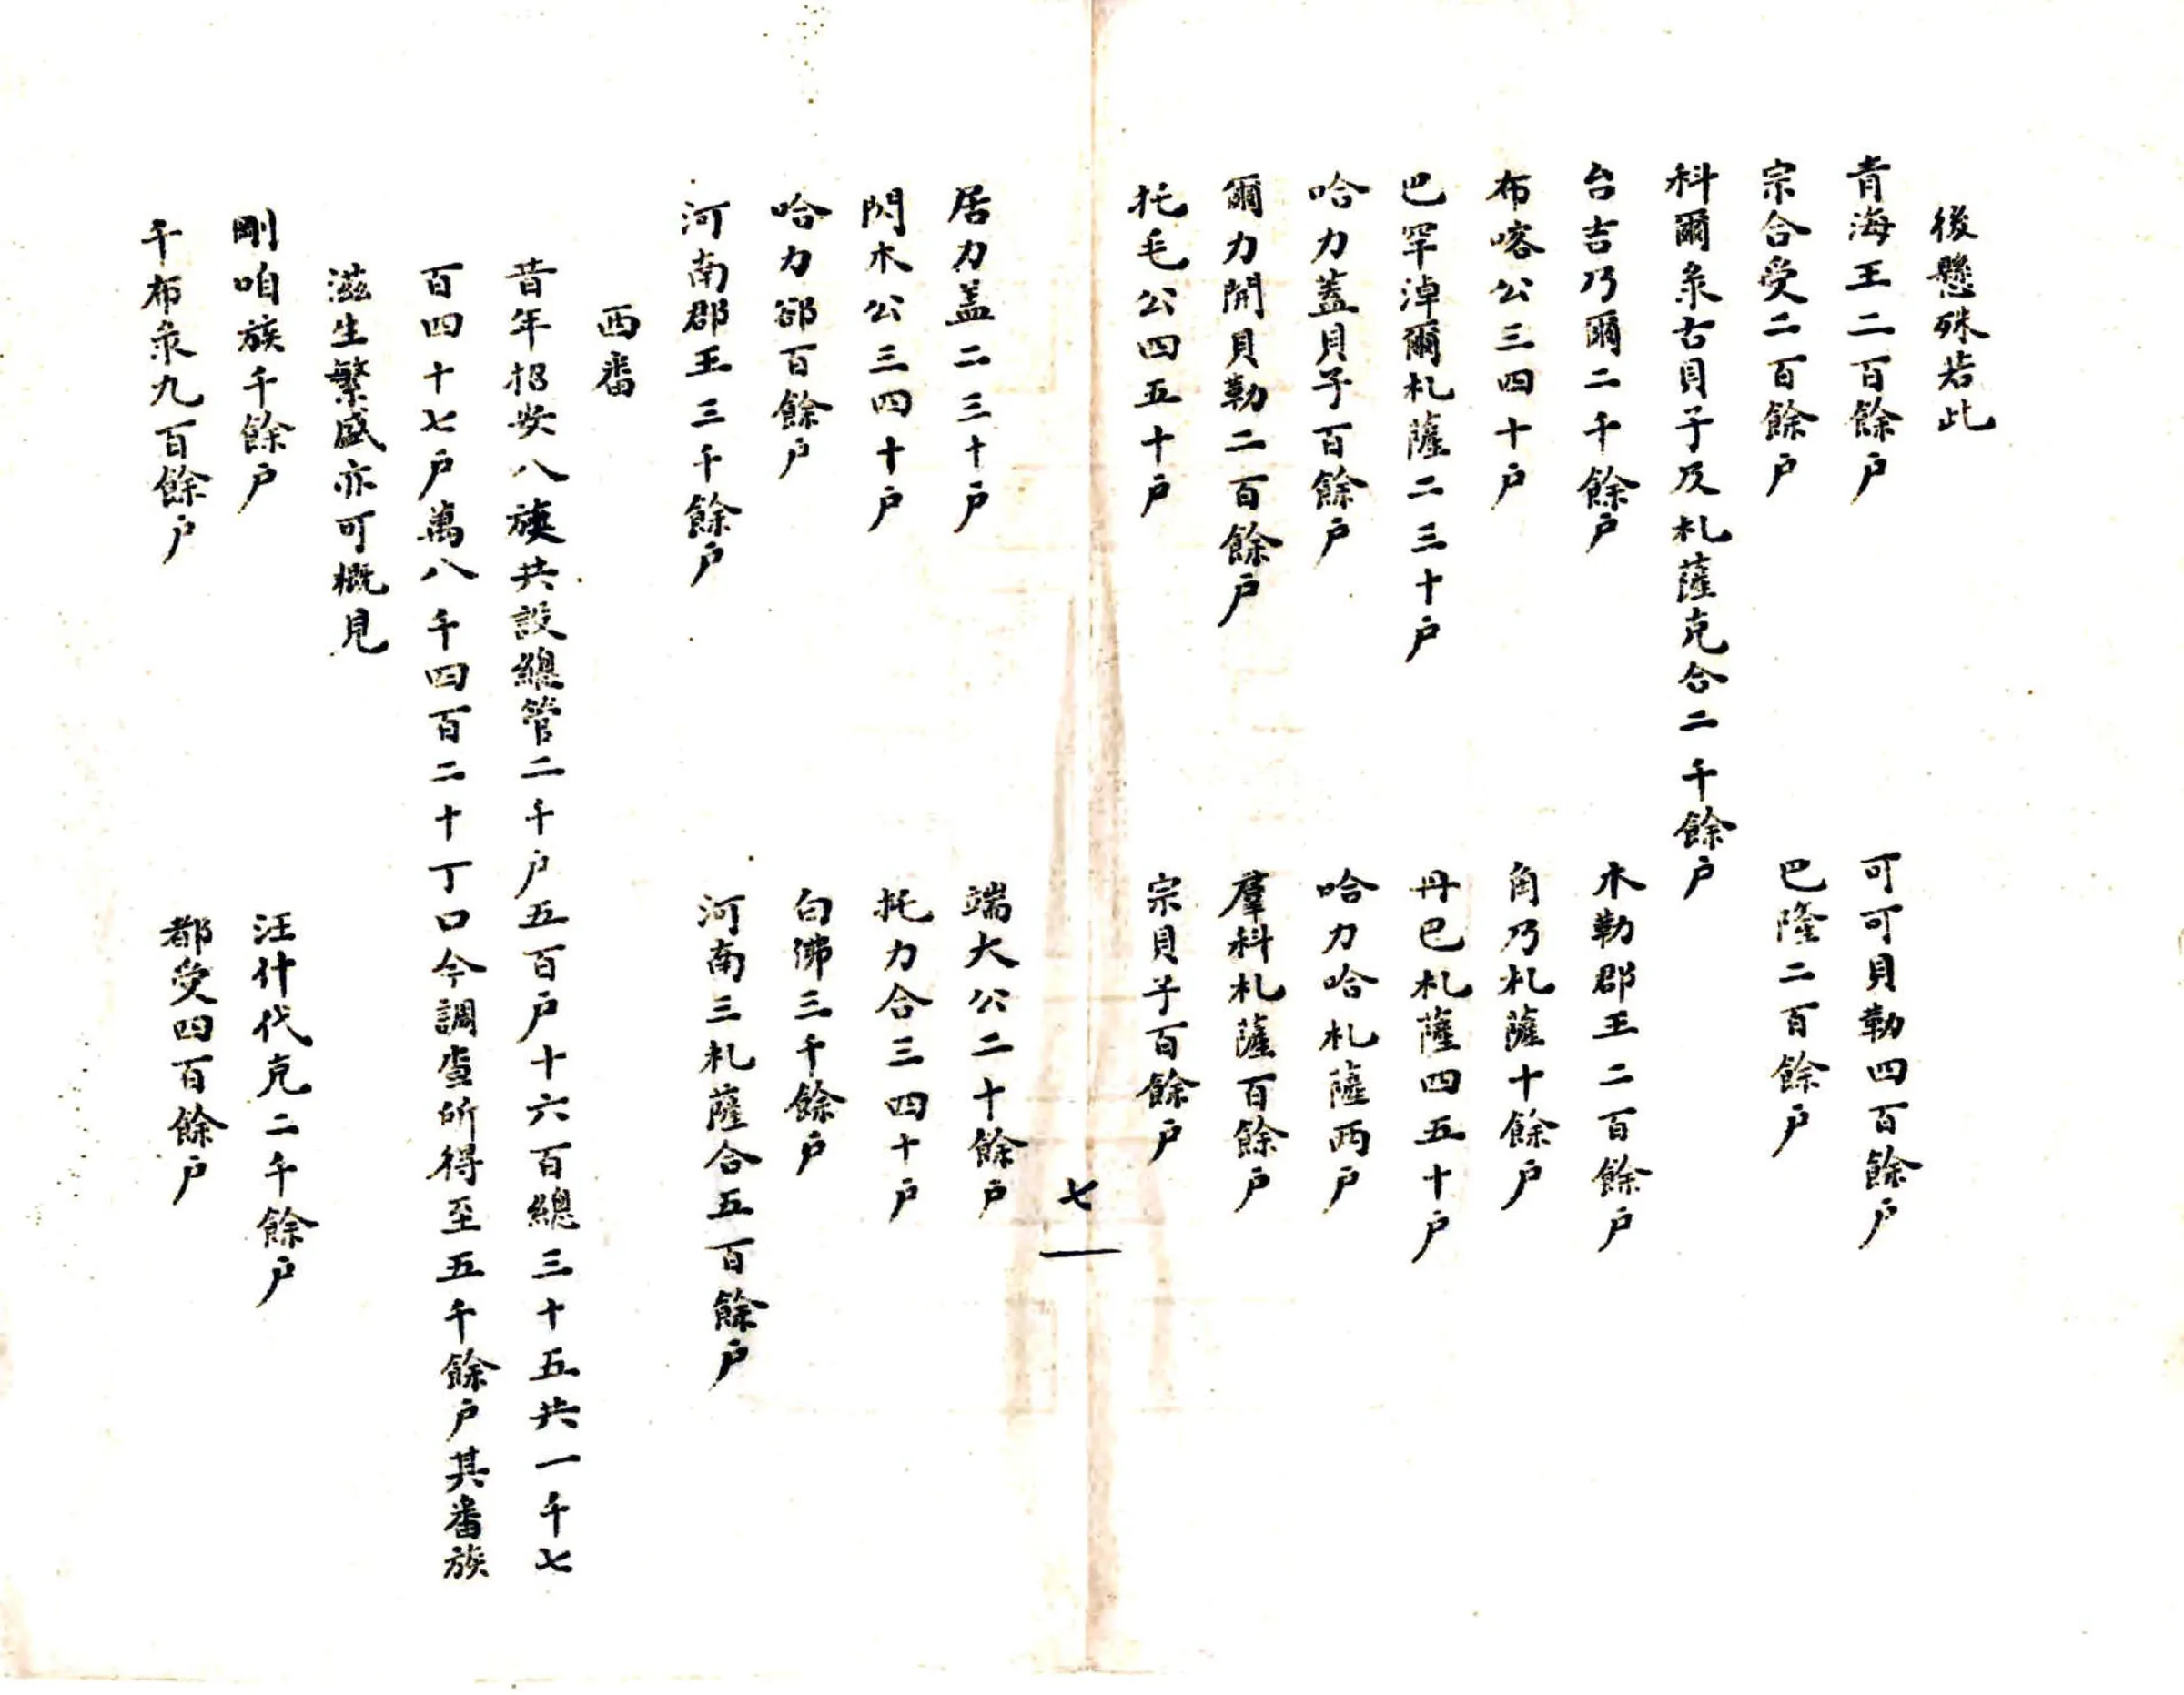 後懸殊若此
青海王二百餘户
可可貝勒四百餘户
宗合受二百餘户
巴隆二百餘户
科爾彔古貝子及札薩克合二千餘户
台吉乃爾二千餘户
木勒郡王二百餘户
布喀公三四十户
角乃札薩十餘户
巴罕淖爾札薩二三十户
丹巴札薩四五十户
哈力蓋貝子百餘户
哈力哈札薩兩户
爾力開貝勒二百餘户
羣科札薩百餘户
托毛公四五十户
宗貝子百餘户
七
居力盖二三十户
端大公二十餘户
閃木公三四十户
托力合三四十户
哈力郤百餘户
白佛三千餘户
河南郡王三千餘户
河南三札薩合五百餘户
西番
昔年招安八族共設總管二千户五百户十六百總三十五共一千七
百四十七户萬八千四百二十丁口今調查所得至五千餘户其番族
滋生繁盛亦可概見
剛咱族千餘户
汪什代克二千餘户
千布彔九百餘户
都受四百餘户